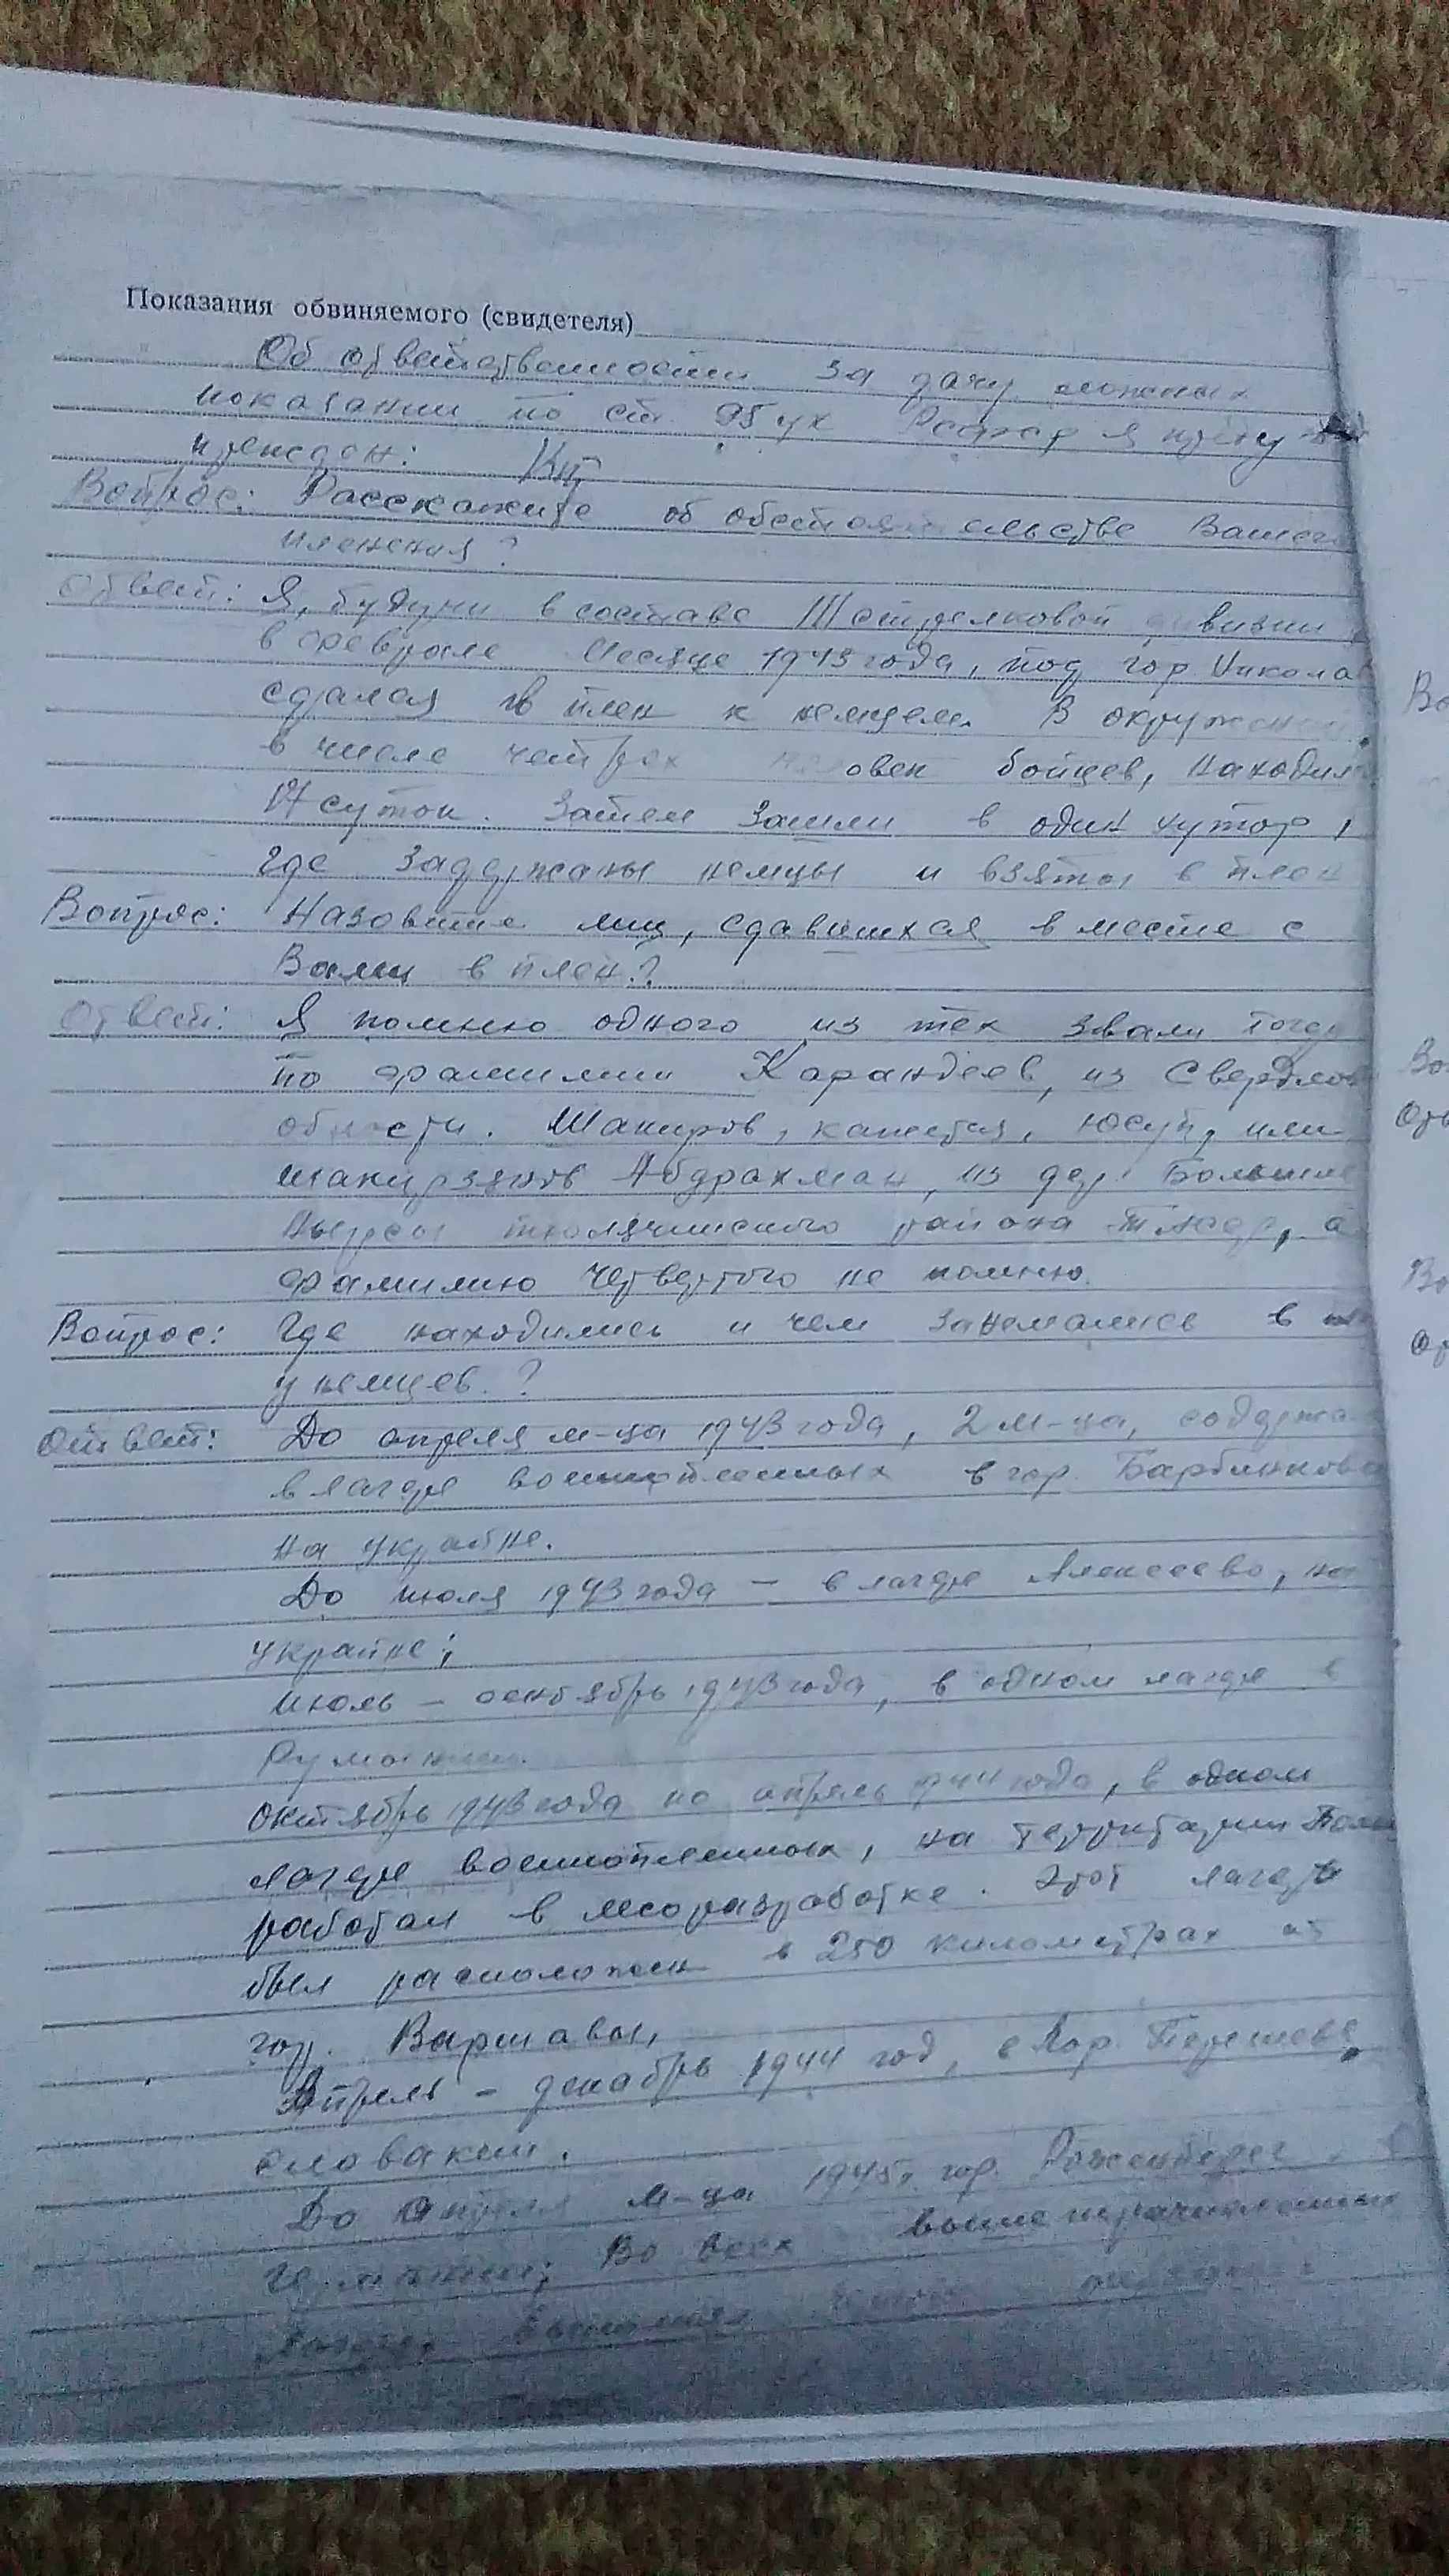 Показания обвиняемого (свидетеля)
Об ответственности за дачу ложных
показании по ст. 95 ук РСФСР я преду
прежден:
Вопрос: Расскажите об обстоятельстве Вашего
пленения?
Ответ: Я, будучи в составе стрелковой дивизии
в феврале месяце 1943 года, под гор. Никола
сдался в плен к немцем. В окружении
в числе четырех человек бойцев, находил
17 суток. Затем зашли в один хутор,
где задержаны немцы и взяты в плен
Вопрос: Назовите лиц, сдавшихся вместе с
Вами в плен?
Ответ: Я помню одного из тех звали тогда
по фамилии Карандеев, из Свердлов
области. Шакиров, кажется, Юсуп, или
Шакирзянов Абдрахман, из дер. Большие
Нырсы тюлячинского района ТАССР, а
фамилию четвертого не помню.
Вопрос: Где находились и чем занемались в
у немцев.?
Ответ: До апреля м-ца 1943 года, 2 м-ца, содержа
в лагере военнопленных в гор. Барблинкова
на украйне.
До июля 1943 года – в лагере Алексеево, на
украйне;
Июль – октябрь 1943 года, в одном лагере в
Румынии.
Октябрь 1943 года по апрель 1944 года, в одном
лагере военнопленных, на территории Поль
работал в лесоразработке. Этот лагерь
был расположен в 250 километрах от
гор. Варшавы,
Апрель – декабрь 1944 год, в гор.
словакии.
До апреля м-ца 1945 г. гор. Розенберг
Германии; Во всех вышеперечисленных